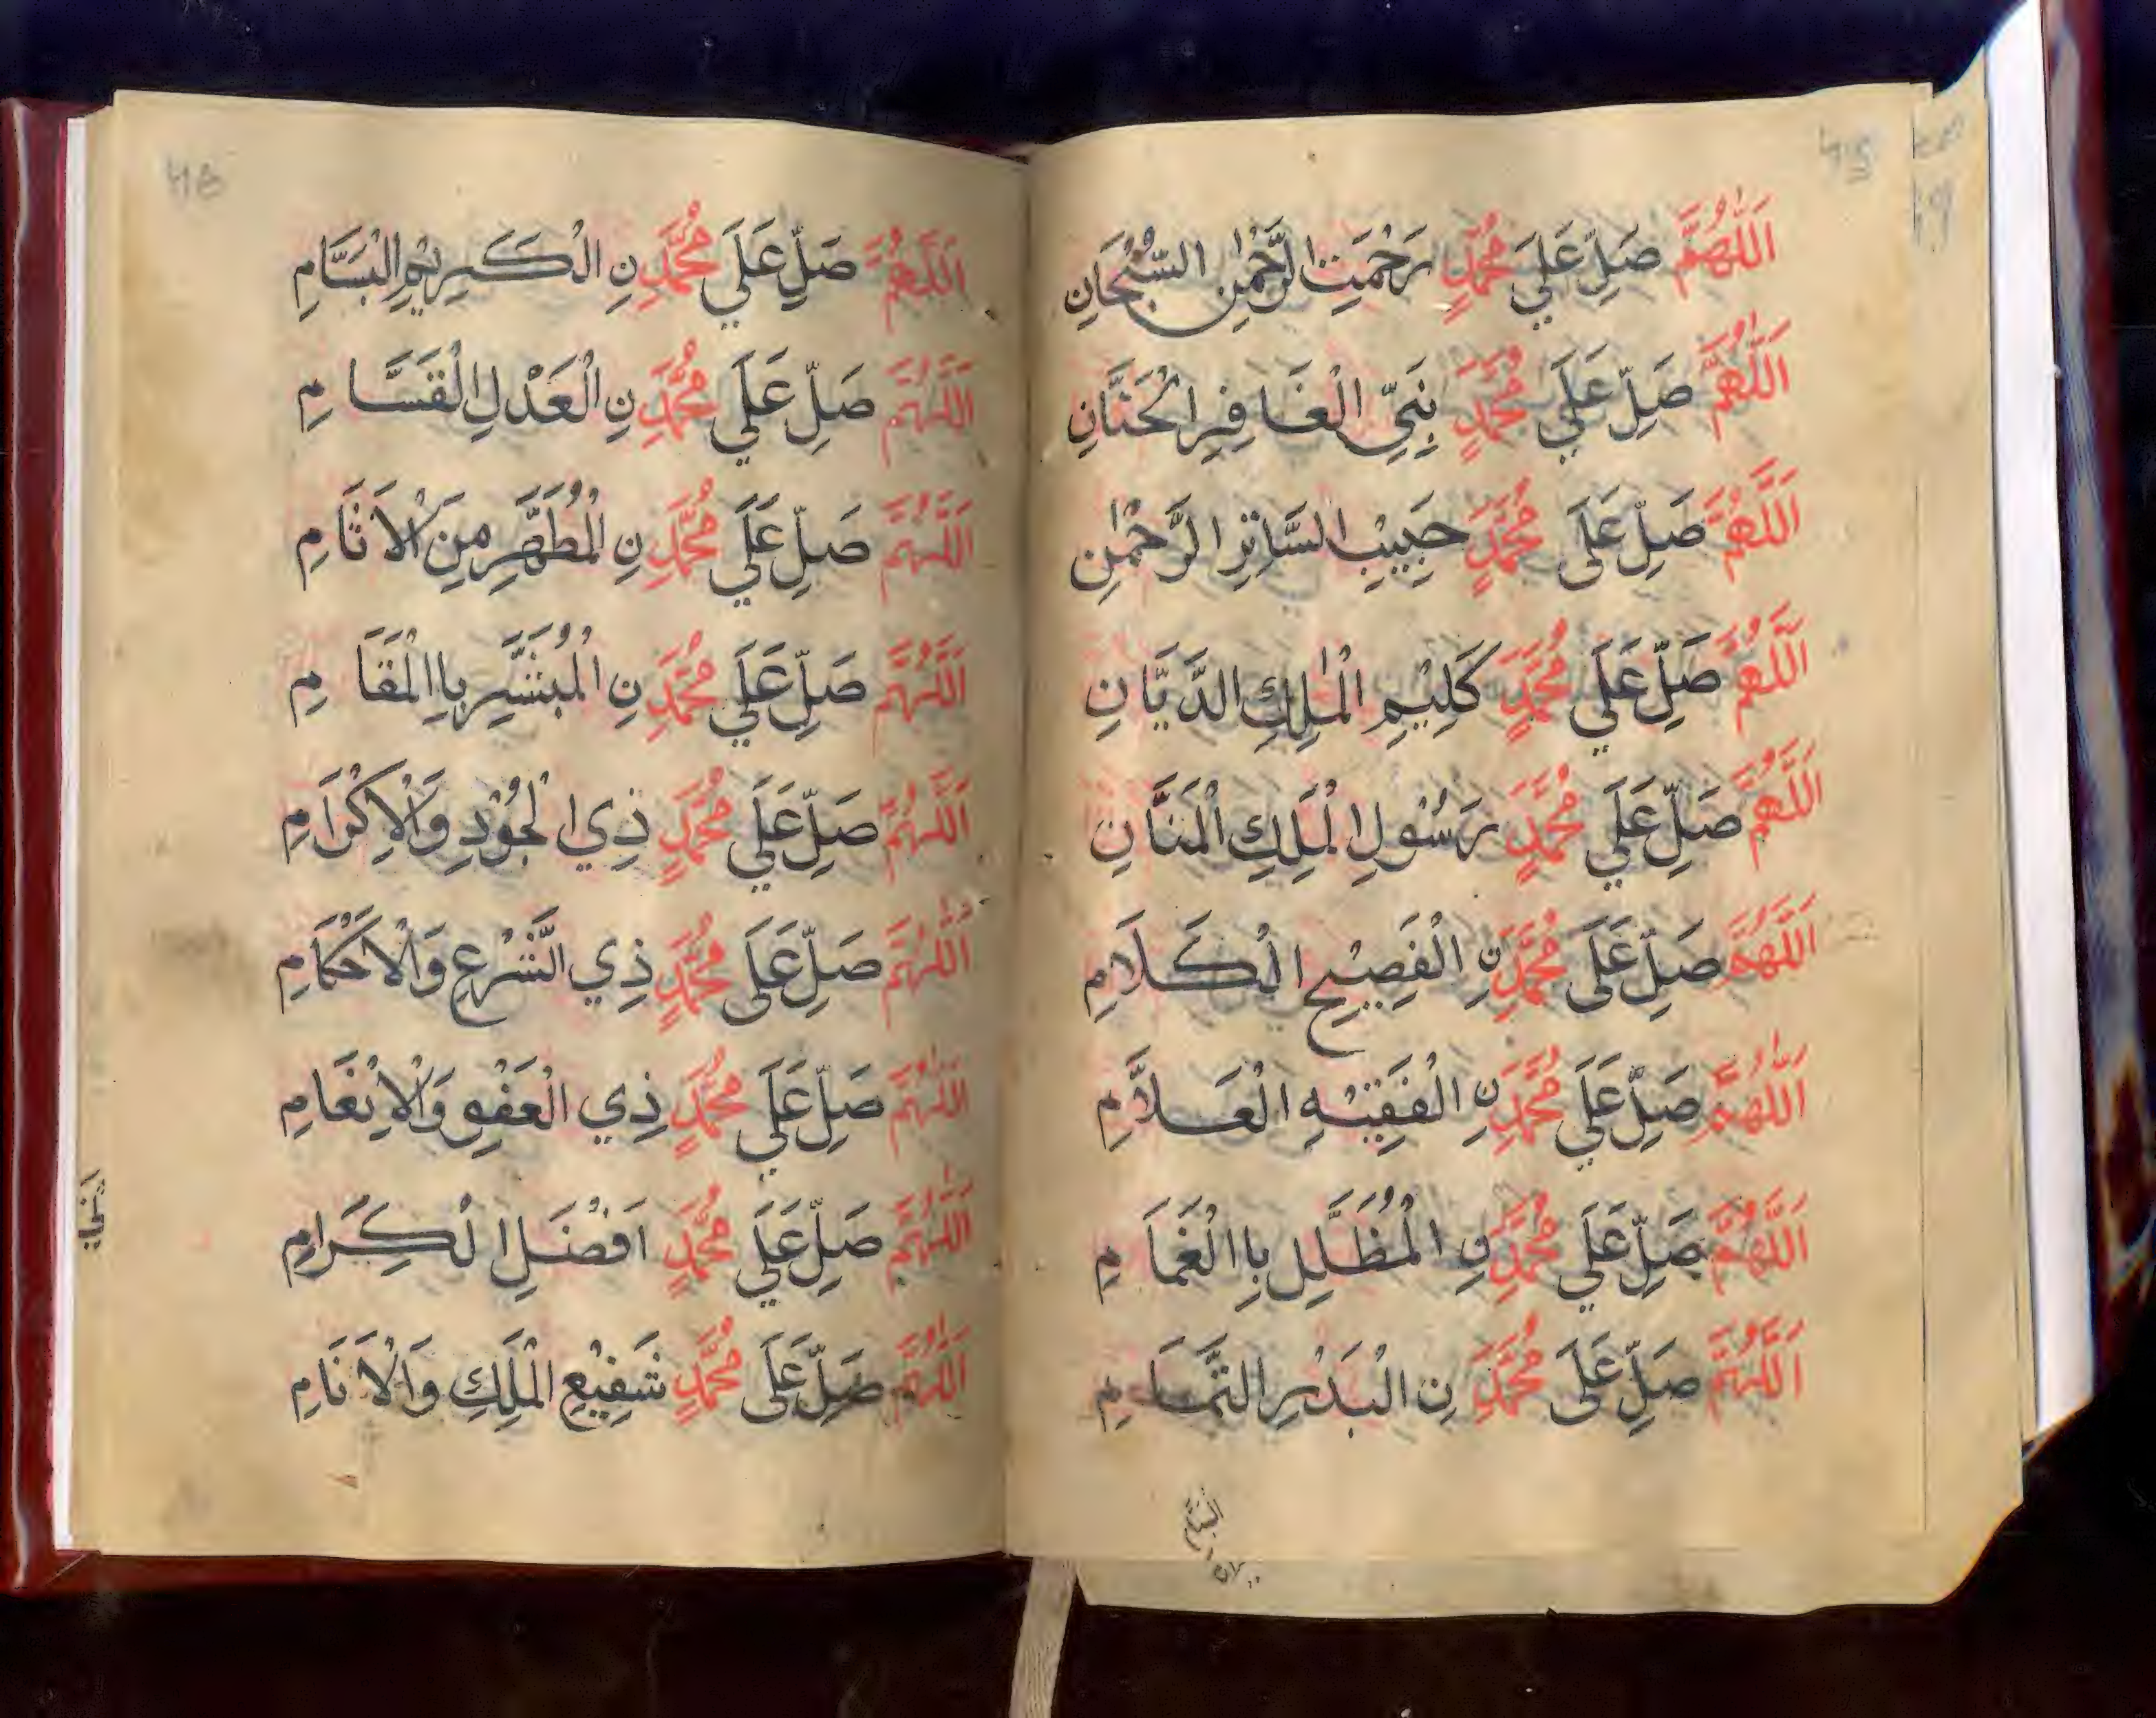 45
اَللّٰهُمَّ صَلِّ عَلَي مُحَمَّدٍ رَحْمَتِ الرَّحْمٰنِ السُّبْحَانِ
اَللّٰهُمَّ صَلِّ عَلَي مُحَمَّدٍ نَبِيِّ الْغَافِرِ الْحَنَّانِ
اَللَّهُمَّ صَلِّ عَلَى مُحَمَّدٍ حَبِيْبِ السَّاتِرِ الرَّحْمٰنِ
اَللَّهُمَّ صَلِّ عَلَي مُحَمَّدٍ كَلِيْمِ الْمٰلِكِ الدَّيَّانِ
اَللَّهُمَّ صَلِّ عَلَي مُحَمَّدٍ رَسُوْلِ الْمَلِكِ الْمَنَّانِ
اَللَّهُمَّ صَلِّ عَلَى مُحَمَّدٍ نِ الْفَصِيْحِ الْكَلَامِ
اَللّٰهُمَّ صَلِّ عَلَي مُحَمَّدٍ نِ الْفَقِيْهِ الْعَلَّامِ
اَللَّهُمَّ صَلِّ عَلَي مُحَمَّدٍ نِ الْمُظَلَّلِ بِاالْغَمَامِ
اَللَّهُمَّ صَلِّ عَلَى مُحَمَّدٍ نِ الْبَدْرِ التَّمَامِ
46
اَللَّهُمَّ صَلِّ عَلَي مُحَمَّدِ نِ الْكَرِيْمِ الْبَسَّامِ
اَللَّهُمَّ صَلِّ عَلَي مُحَمَّدِ نِ الْعَدْلِ الْقَسَّامِ
اَللَّهُمَّ صَلِّ عَلَي مُحَمَّدِ نِ الْمُطَهَّرِ مِنَ الْاَثَامِ
اَللَّهُمَّ صَلِّ عَلَي مُحَمَّدِ نِ الْمُبَشَّرِ بِاالْمَقَامِ
اَللَّهُمَّ صَلِّ عَلَي مُحَمَّدٍ ذِي الْجُوْدِ وَالْاِكْرَامِ
اَللَّهُمَّ صَلِّ عَلَى مُحَمَّدٍ ذِي الشَّرْعِ وَالْاَحْكَامِ
اَللّٰهُمَّ صَلِّ عَلَي مُحَمَّدٍ ذِي الْعَفْوِ وَالْاِنْعَامِ
اَللّٰهُمَّ صَلِّ عَلَي مُحَمَّدٍ اَفْضَلِ الْكِرَامِ
اَللّٰهُمَّ صَلِّ عَلَى مُحَمَّدٍ شَفِيْعِ الْمَلِكِ وَالْاَنَامِ